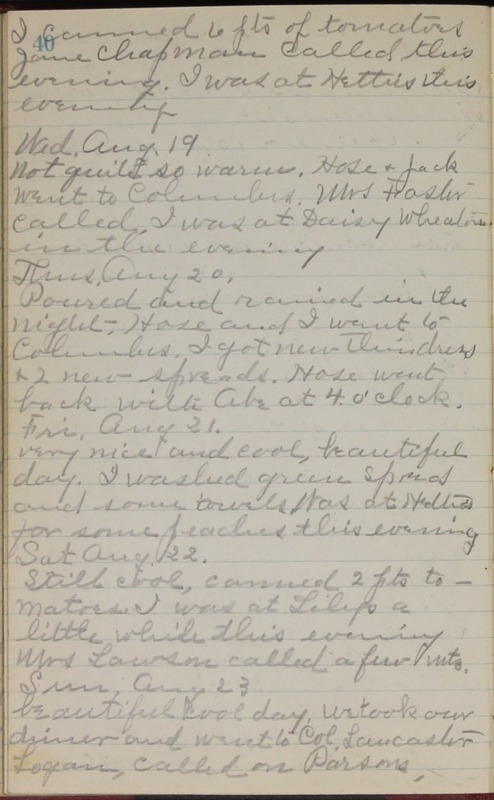 I canned 6 pts of tomatoes
40
Jane Chapman called this
evening. I was at Hetties this
evening
Wed. Aug. 19
Not quite so warm. Hose & Jack
went to Columbus. Mrs Foster
called. I was at Daisy Wheatons
in the evening
Thus. Aug 20,
Poured and rained in the
night, Hose and I want to
Columbus. I got new Thin dress
& 2 new spreads. Hose went
back with Abe at 4 o'clock.
Fri, Aug 21.
very nice and cool, beautiful
day. I washed green spread
and some towels, Was at Hetties
for some peaches this evening
Sat Aug. 22.
Still cool, canned 2 pts to-
matoes. I was at Lily's a
little while this evening
Mrs Lawson called a few mts.
Sun, Aug 23
beautiful cool day, we took our
dinner and went to Col. Lancaster
Logan, called on Parsons,